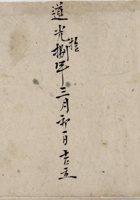 道光拾捌年三月初一日吉立